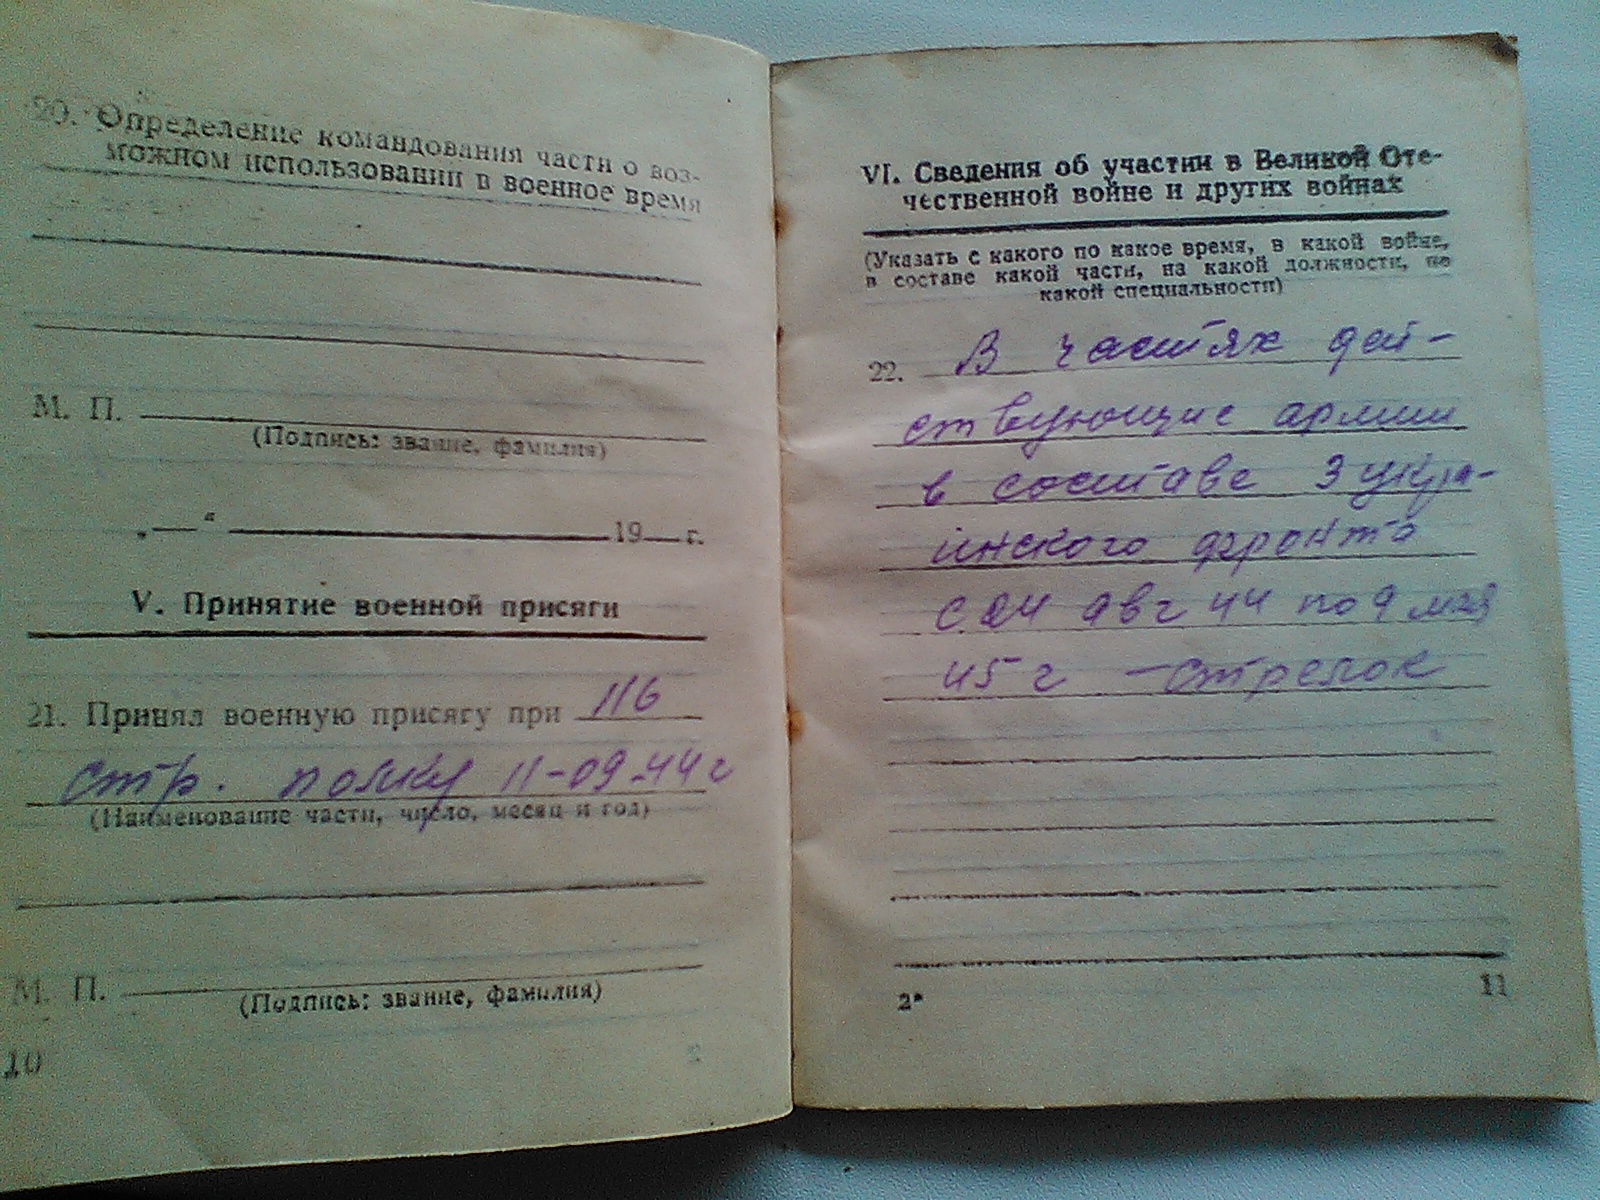 20. Определение командования части о воз-
можном использовании в военное время
М. П.
(Подпись: звание, фамилия)
„ — “ 19 — г.
V. Принятие военной присяги
21. Принял военную присягу при 116
стр. полку 11-09-44 г
(Наименование части, число, месяц и год)
М. П.
(Подпись: звание, фамилия)
10
VI. Сведения об участии в Великой Оте-
чественной войне и других войнах
(Указать с какого по какое время, в какой войне,
в составе какой части, на какой должности, по
какой специальности)
22. В частях дей-
ствующие армии
в составе 3 укра-
инского фронта
с 24 авг 44 по 9 мая
45 г — стрелок
2*
11